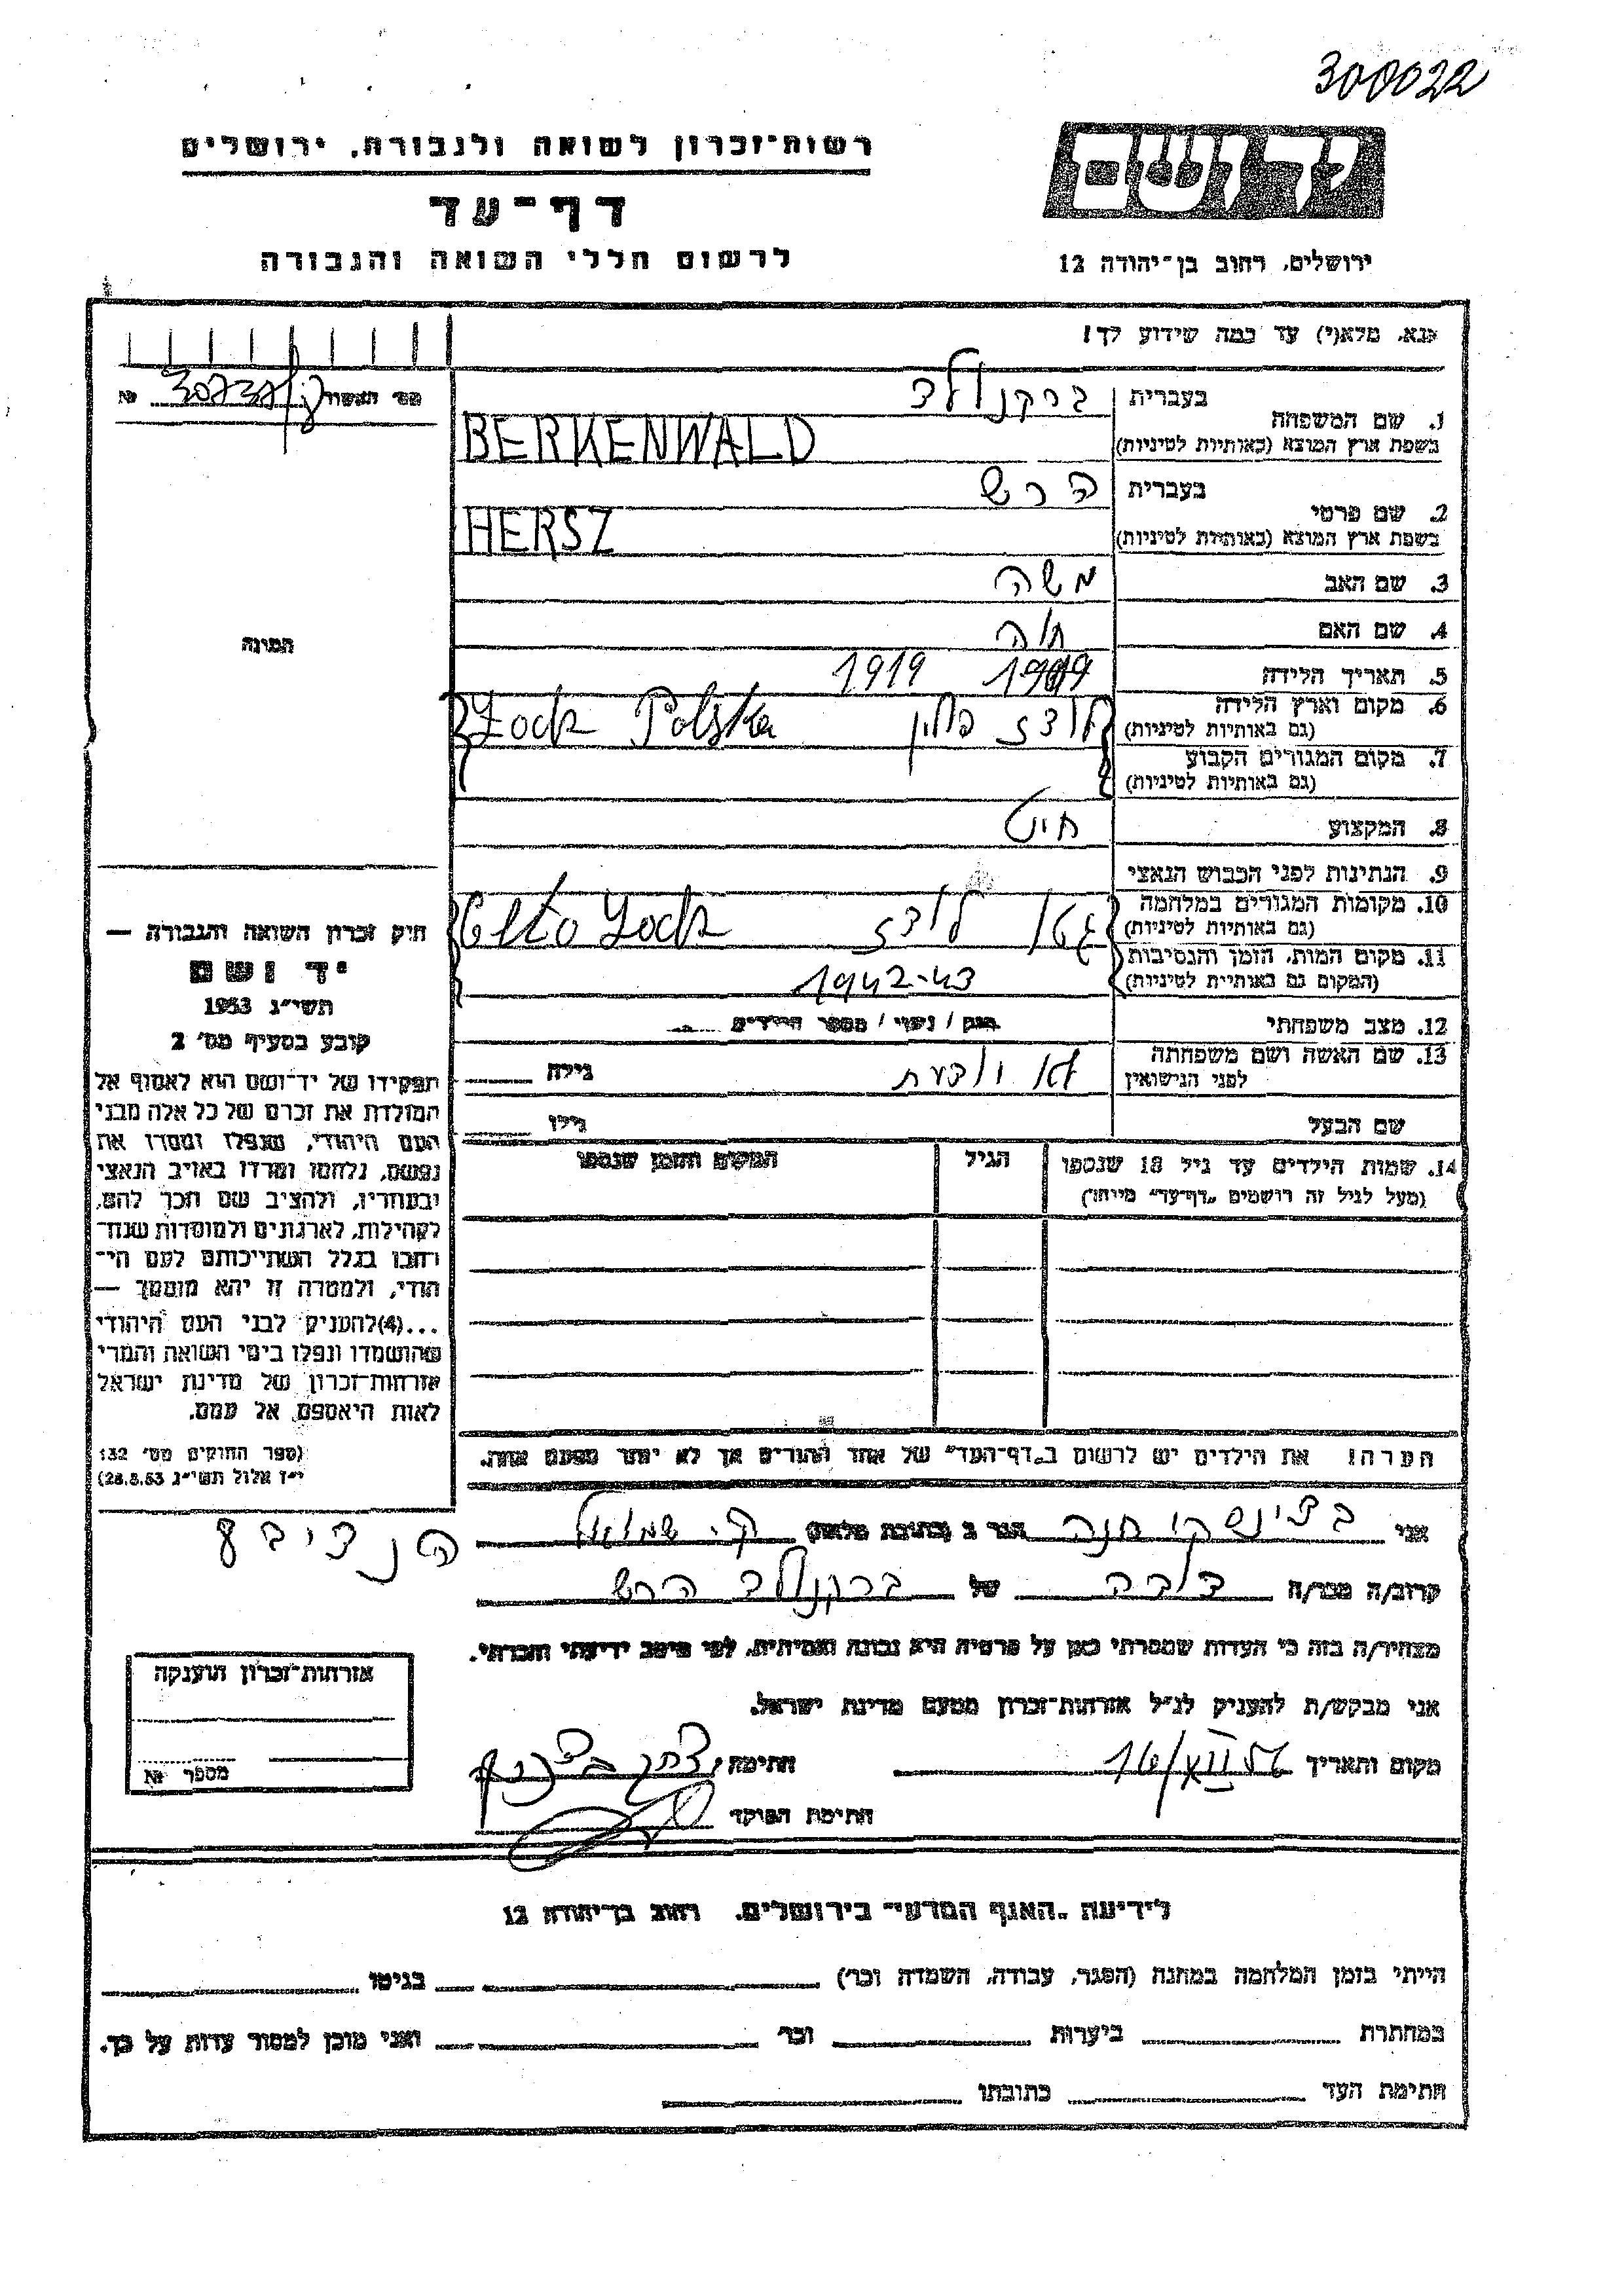 300022
רשות־זכרון לשואה ולגבורה, ירושלים
דף־עד
לרשום חללי השואה והגבורה
יד ושם
ירושלים, רחוב בן־יהודה 12
נא, מלא(י) עד כמה שידוע לך!
מס' האשור №
1. שם המשפחה בעברית ברקנולד
בשפת ארץ המוצא (באותיות לטיניות) BERKENWALD
2. שם פרטי בעברית הרש
בשפת ארץ המוצא (באותיות לטיניות) HERSZ
3. שם האב משה
4. שם האם חוה
5. תאריך הלידה 1919 1919
6. מקום וארץ הלידה לודז פולין Polska
(גם באותיות לטיניות)
7. מקום המגורים הקבוע
(גם באותיות לטיניות)
8. המקצוע חיט
9. הנתינות לפני הכבוש הנאצי
10. מקומות המגורים במלחמה גטו לודז
(גם באותיות לטיניות)
11. מקום המות, הזמן והנסיבות 1942-43
(המקום גם באותיות לטיניות)
12. מצב משפחתי רווק / נשוי / מספר הילדים
13. שם האשה ושם משפחתה לא יודעת גילה
לפני הנישואין
שם הבעל גילו
14. שמות הילדים עד גיל 18 שנספו הגיל המקום והזמן שנספו
(מעל לגיל זה רושמים „דף־עד" מיוחד)
הערה! את הילדים יש לרשום ב„דף־העד" של אחד ההורים אך לא יותר מפעם אחת.
התמונה
חוק זכרון השואה והגבורה —
יד ושם
תשי"ג 1953
קובע בסעיף מס' 2
תפקידו של יד־ושם הוא לאסוף אל
המולדת את זכרם של כל אלה מבני
העם היהודי, שנפלו ומסרו את
נפשם, נלחמו ומרדו באויב הנאצי
ובעוזריו, ולהציב שם וזכר להם,
לקהילות, לארגונים ולמוסדות שנח־
רבו בגלל השתייכותם לעם הי־
הודי, ולמטרה זו יהא מוסמך —
...(4)להעניק לבני העם היהודי
שהושמדו ונפלו בימי השואה והמרי
אזרחות־זכרון של מדינת ישראל
לאות היאספם אל עמם.
(ספר החוקים מס' 132
י"ז אלול תשי"ג 28.8.53)
אני חנה הגר ב (כתובת מלאה) ק. שמואל
קרוב/ה מכר/ה דודה של ברקנולד הרש
מצהיר/ה בזה כי העדות שמסרתי כאן על פרטיה היא נכונה ואמיתית, לפי מיטב ידיעתי והכרתי.
אני מבקש/ת להעניק לנ"ל אזרחות־זכרון מטעם מדינת ישראל.
מקום ותאריך 16/XII 56 חתימה
חתימת הפוקד
אזרחות־זכרון הוענקה
מספר №
לידיעת „האגף המדעי" בירושלים, רחוב בן־יהודה 12
הייתי בזמן המלחמה במחנה (הסגר, עבודה, השמדה וכו') בגיטו
במחתרת ביערות וכו' ואני מוכן למסור עדות על כך.
חתימת העד כתובתו